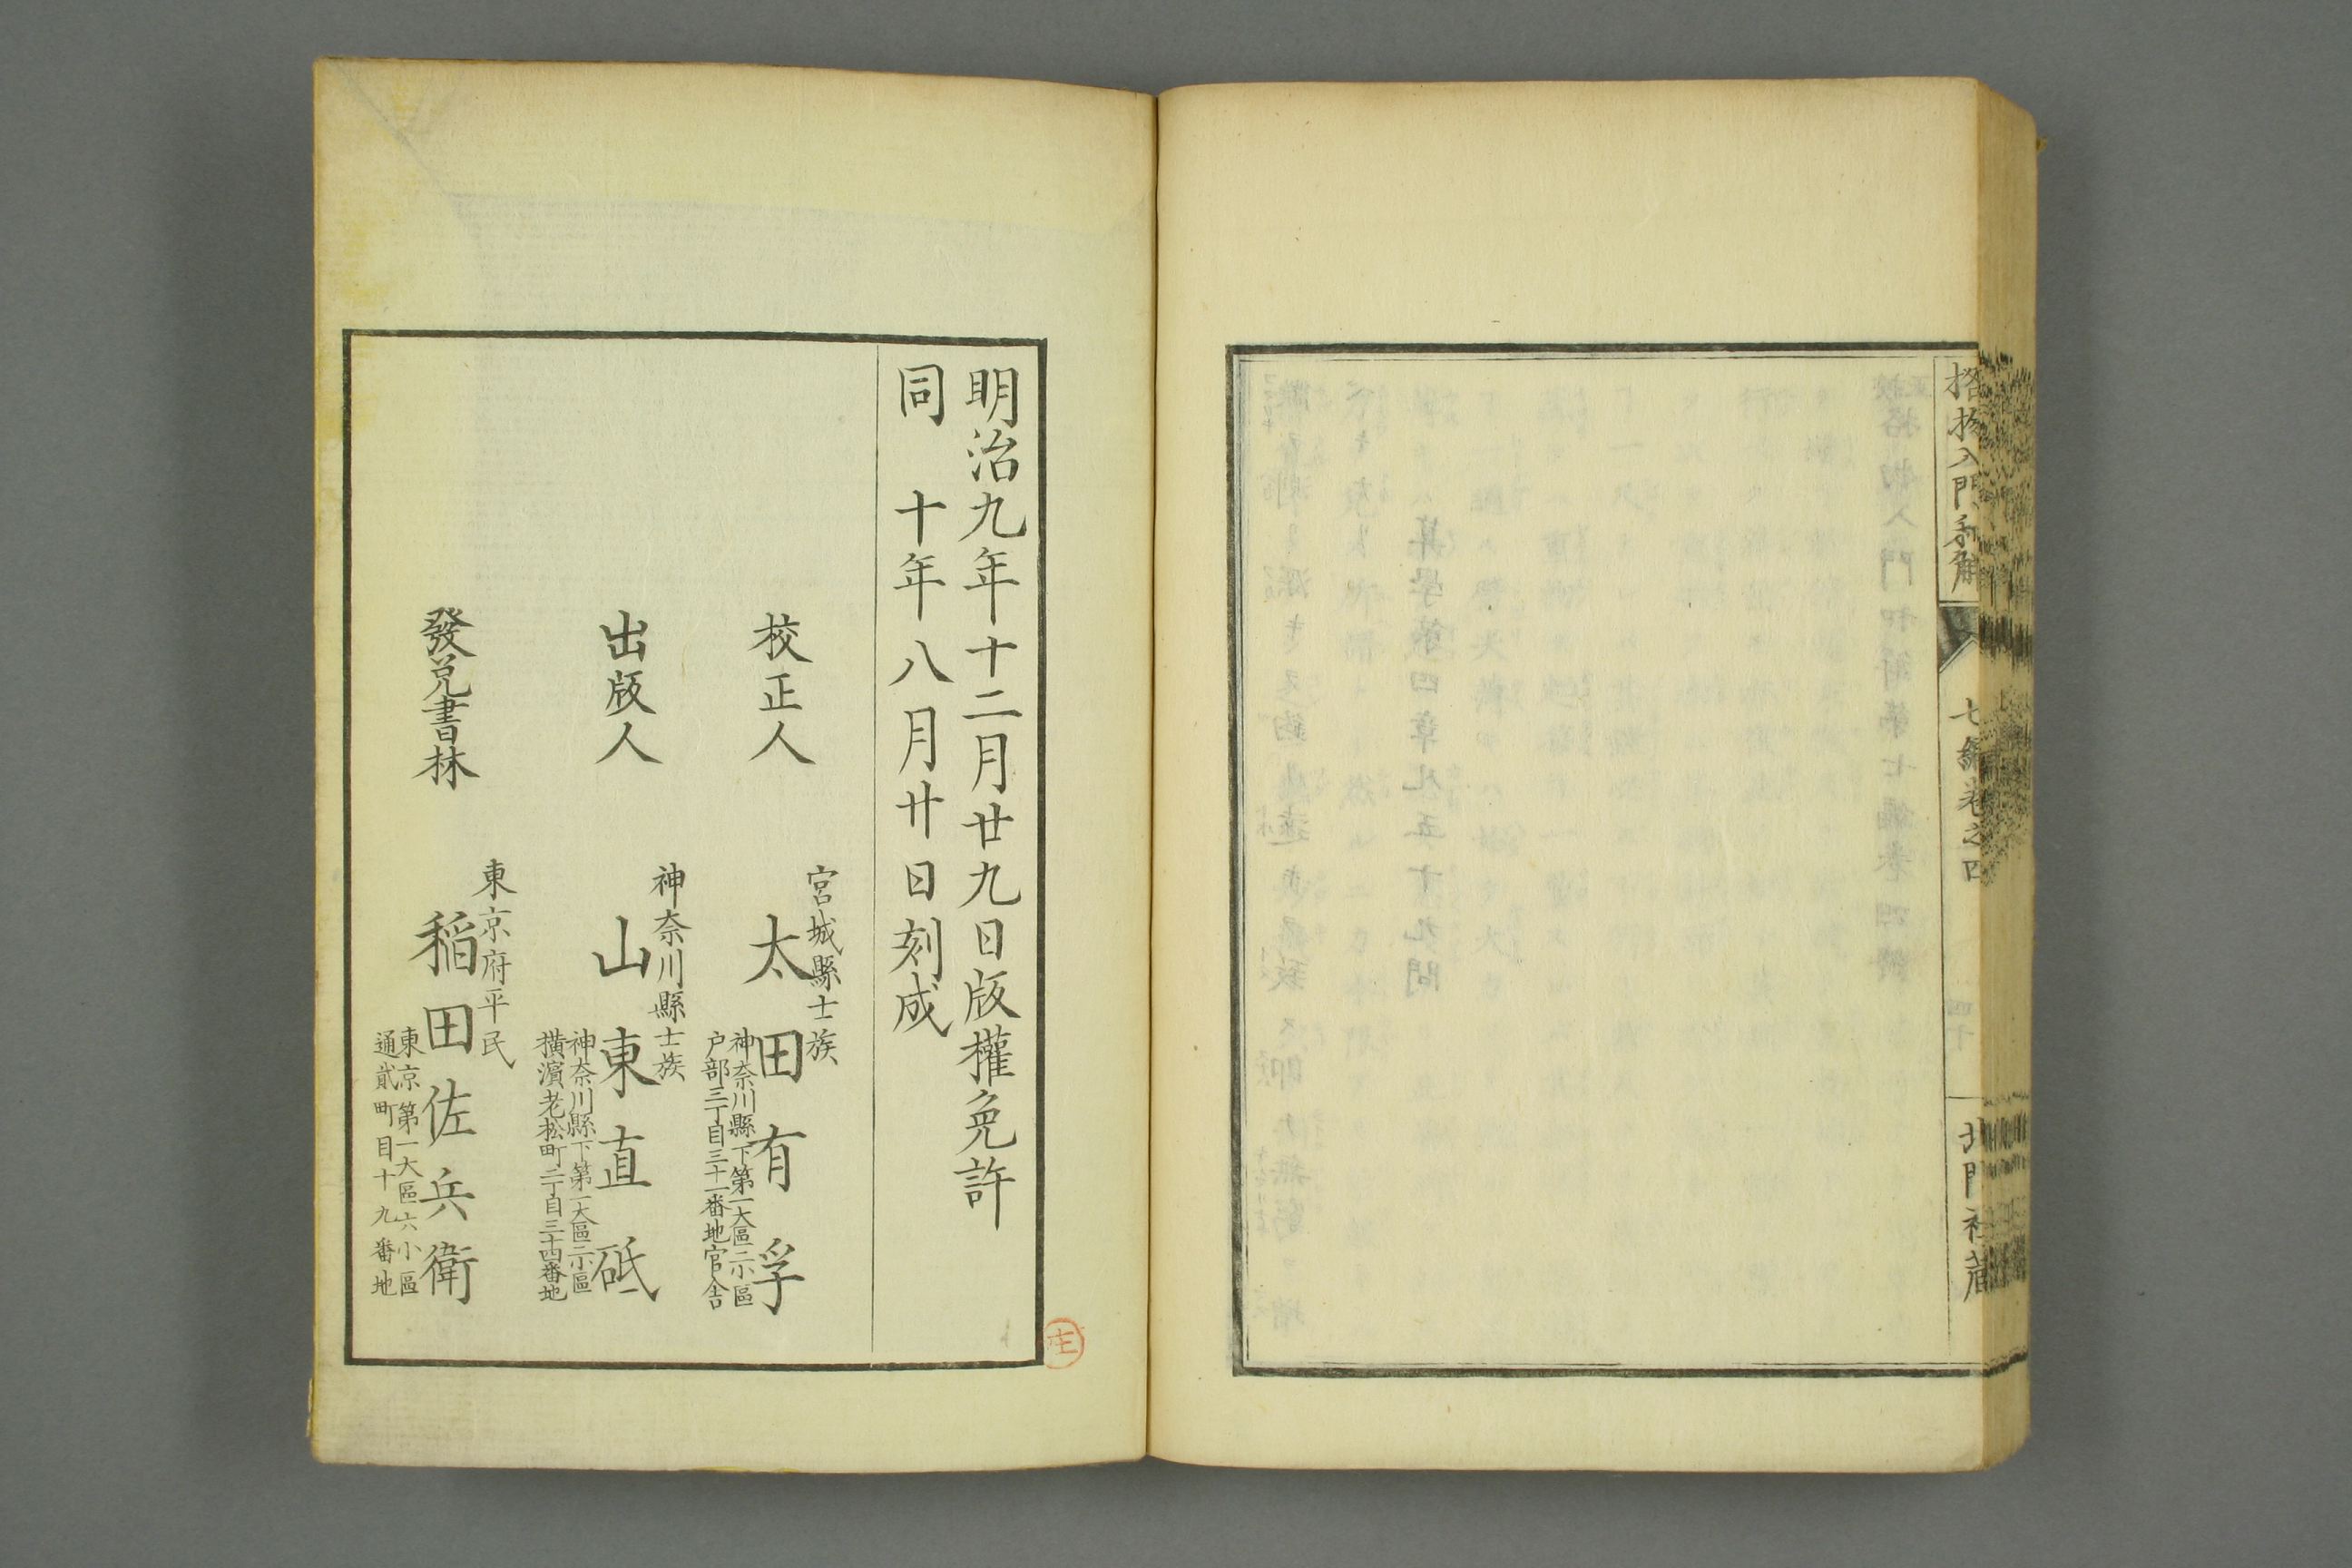 格物入門和解
七編卷之四
北門社藏
明治九年十二月廿九日版權免許
同十年八月廿日刻成
校正人
宮城縣士族
太田有孚
神奈川縣下第一大區二小區
戸部三丁目三十一番地官舎
出版人
神奈川縣士族
山東直砥
神奈川縣下第一大區二小區
橫濱老松町二丁目三十四番地
發兌書林
東京府平民
稲田佐兵衛
東京第一大區六小區
通貳町目十九番地